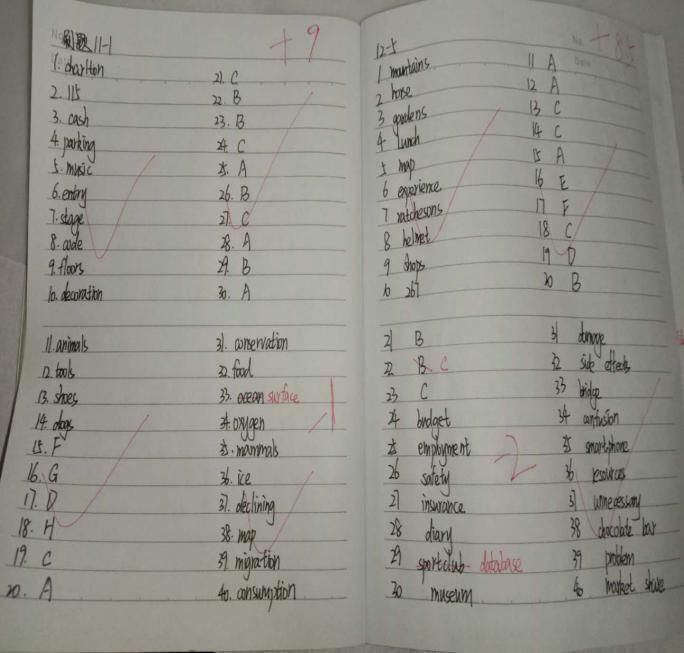 刷题 11-1
+9
1. charlton
2. 115
3. cash
4. parking
5. music
6. entry
7. stage
8. code
9. floors
10. decoration
11. animals
12. tools
13. shoes
14. dogs
15. F
16. G
17. D
18. H
19. C
20. A
21. C
22. B
23. B
24. C
25. A
26. B
27. C
28. A
29. B
30. A
31. conservation
32. food
33. ocean surface
34. oxygen
35. mammals
36. ice
37. declining
38. map
39. migration
40. consumption
-1
12-5
No.
Date
+85
1 mantains
2 horse
3 gardens
4 lunch
5 map
6 experience
7 ratchesons
8 helmet
9 shops
10 267
11 A
12 A
13 C
14 C
15 A
16 E
17 F
18 C
19 D
20 B
21 B
22 B C
23 C
24 budget
25 employment
26 safety
27 insurance
28 diary
29 sport club database
30 museum
-2
31 damage
32 side effects
33 bridge
34 confusion
35 smartphone
36 resources
37 unnecessary
38 chocolate bar
39 problem
40 market share